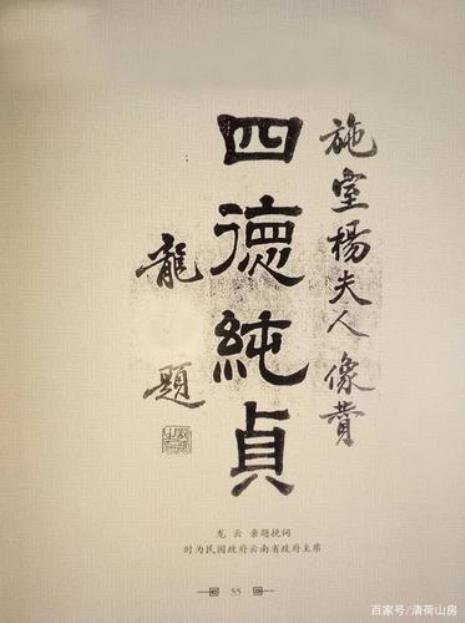 施室楊夫人像贊
四德純貞
龍 題
龙 云 亲题挽词
时为民国政府云南省政府主席
55
百家号/清荷山房